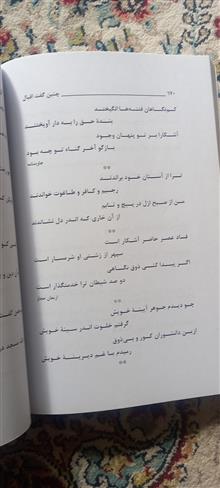 ۱۷۰ چنین گفت اقبال
کم‌نگاهان فتنه‌ها انگیختند
بندهٔ حق را به دار آویختند
آشکارا بر تو پنهان وجود
بازگو آخر گناه تو چه بود
جاویدنامه
**
ترا از آستان خود براندند
رجیم و کافر و طاغوت خواندند
من از صبح ازل در پیچ و تابم
از آن خاری که اندر دل نشاندند
**
فساد عصر حاضر آشکار است
سپهر از زشتی او شرمسار است
اگر پیدا کنی ذوق نگاهی
دو صد شیطان ترا خدمتگذار است
ارمغان حجاز
**
چو دیدم جوهر آیینهٔ خویش
گرفتم خلوت اندر سینهٔ خویش
ازین دانشوران کور و بی‌ذوق
رمیدم با غم دیرینهٔ خویش
**